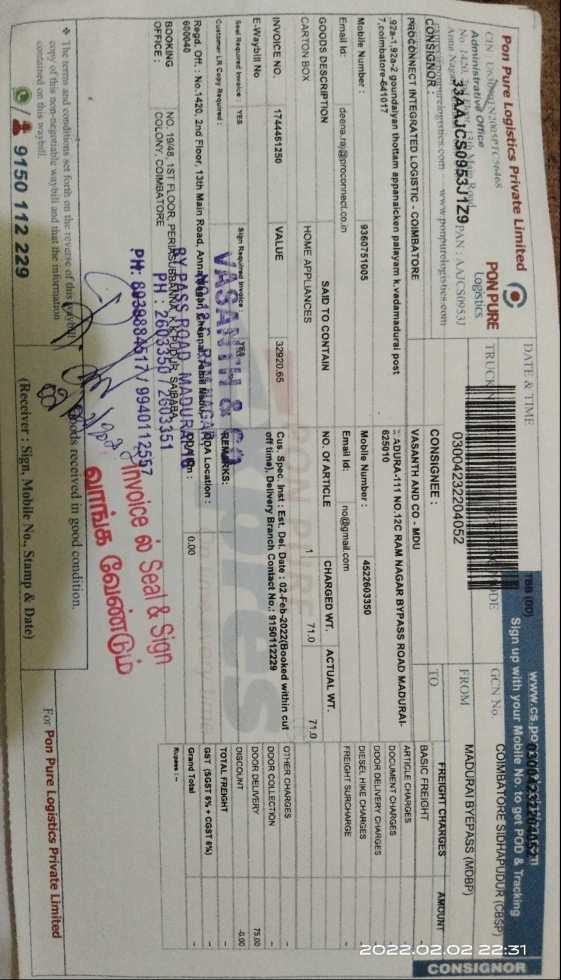 Pon Pure Logistics Private Limited
Administrative Office
PON PURE
Logistics
33AAJCS0953J1Z9 PAN : AAJCS0953J
www.ponpurelogistics.com
DATE & TIME
TRUCK N
03004232204052
TBB (00)
www.cs.po
Sign up with your Mobile No. to get POD & Tracking
CONSIGNOR
GCN No.
COIMBATORE SIDHAPUDUR (CBSP)
FROM
MADURAI BYEPASS (MDBP)
TO
CONSIGNOR :
PROCONNECT INTEGRATED LOGISTIC - COIMBATORE
92a-1,92a-2 goundaiyan thottam appanaicken palayam k.vadamadurai post
7,coimbatore-641017
Mobile Number : 9360751005
Email Id: deena.raj@proconnect.co.in
CONSIGNEE :
VASANTH AND CO - MDU
ADURA-111 NO.12C RAM NAGAR BYPASS ROAD MADURAI-
625010
Mobile Number : 4522603350
Email Id: no@gmail.com
GOODS DESCRIPTION SAID TO CONTAIN NO. Of ARTICLE CHARGED WT. ACTUAL WT.
CARTON BOX HOME APPLIANCES 1 71.0 71.0
INVOICE NO. 1744451250 VALUE 32920.65
E-Waybill No
Cus. Spec. Inst : Est. Del. Date : 02-Feb-2022(Booked within cut
off time), Delivery Branch Contact No.: 9150112229
Seal Required Invoice : YES Sign Required Invoice : YES
REMARKS:
Customer LR Copy Required :
ODA Location :
0.00
Regd. Off. : No.1420, 2nd Floor, 13th Main Road, Anna Nagar
600040
BOOKING
OFFICE :
NO. 19/48, 1ST FLOOR, PERIYASUBBANNA, K.K.PUDUR, SAIBABA
COLONY, COIMBATORE
FREIGHT CHARGES AMOUNT
BASIC FREIGHT -
ARTICLE CHARGES -
DOCUMENT CHARGES -
DOOR DELIVERY CHARGES -
DIESEL HIKE CHARGES -
FREIGHT SURCHARGE
OTHER CHARGES -
DOOR COLLECTION -
DOOR DELIVERY 75.00
DISCOUNT -0.00
TOTAL FREIGHT -
GST (SGST 6% + CGST 6%) -
Grand Total -
Rupees : -
VASANTH & CO
RAM NAGAR
BY PASS ROAD, MADURAI-10
PH : 2603350 / 2603351
PH: 8939884517 / 9940112557
Invoice ல் Seal & Sign
வாங்க வேண்டும்
❖ The terms and conditions set forth on the reverse of this
copy of this non-negotiable waybill and that the information
contained on this waybill.
oods received in good condition.
9150 112 229
(Receiver : Sign, Mobile No., Stamp & Date)
For Pon Pure Logistics Private Limited
2022.02.02 22:31